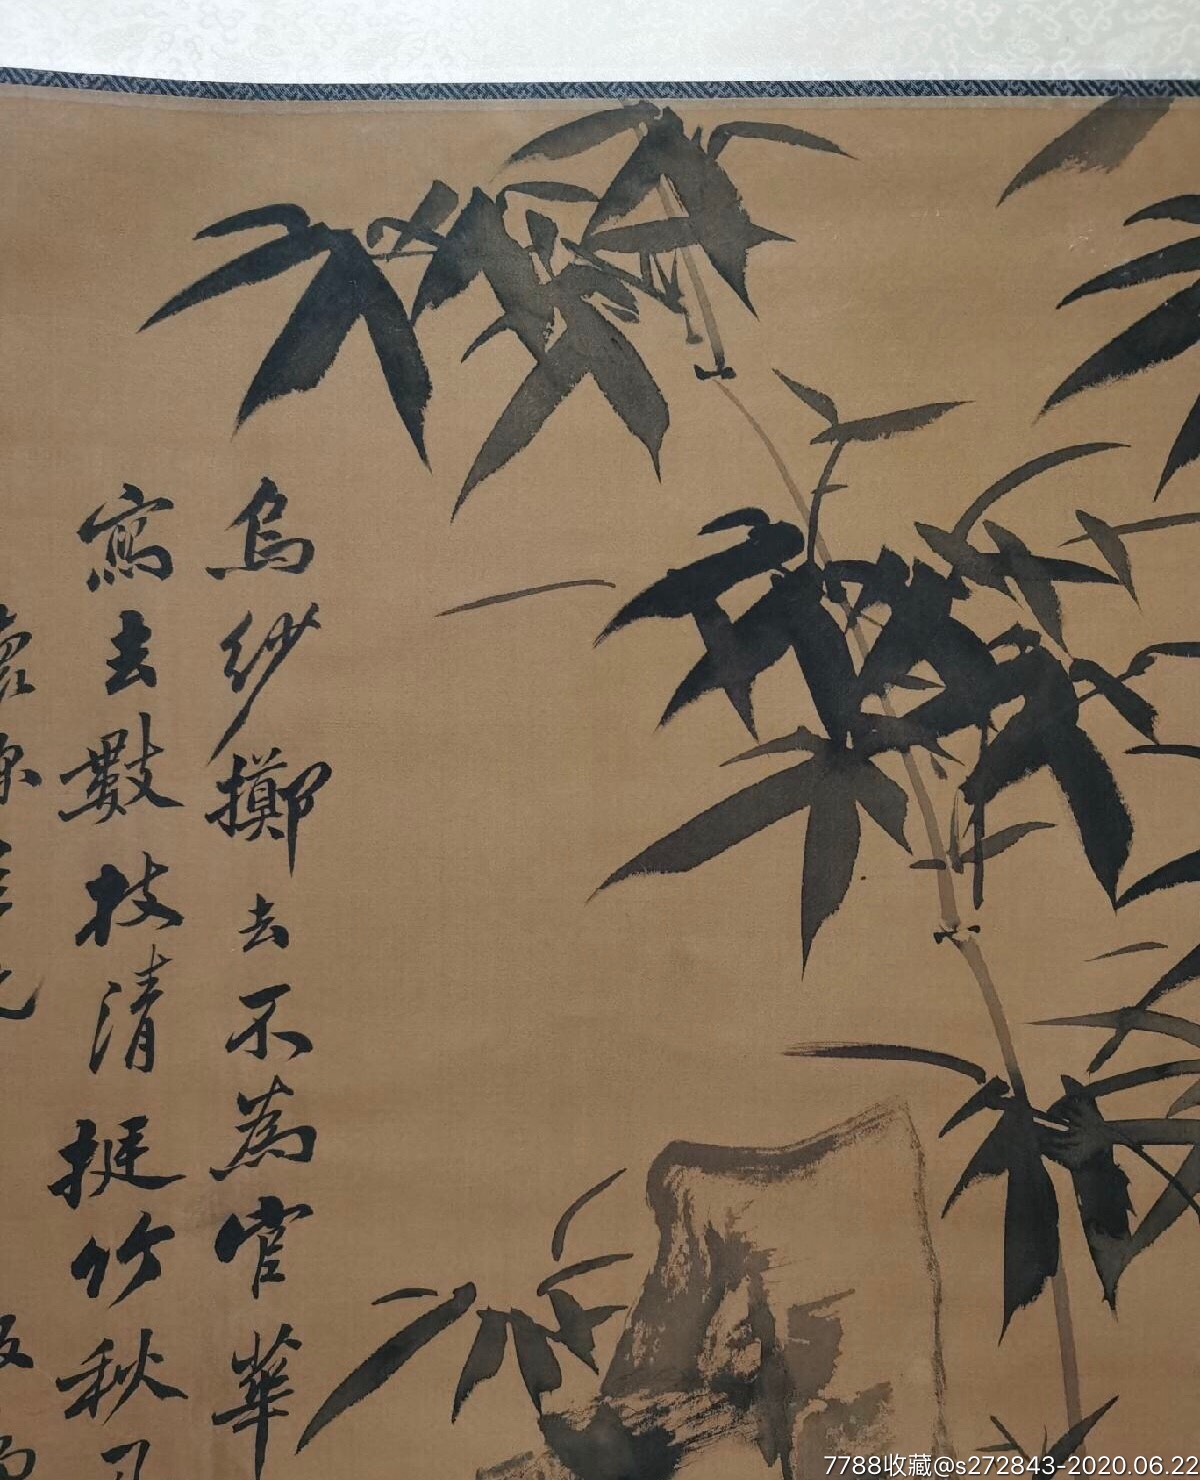 烏紗擲去不為官華
寫去數枝清挺竹秋
7788收藏@s272843-2020.06.22